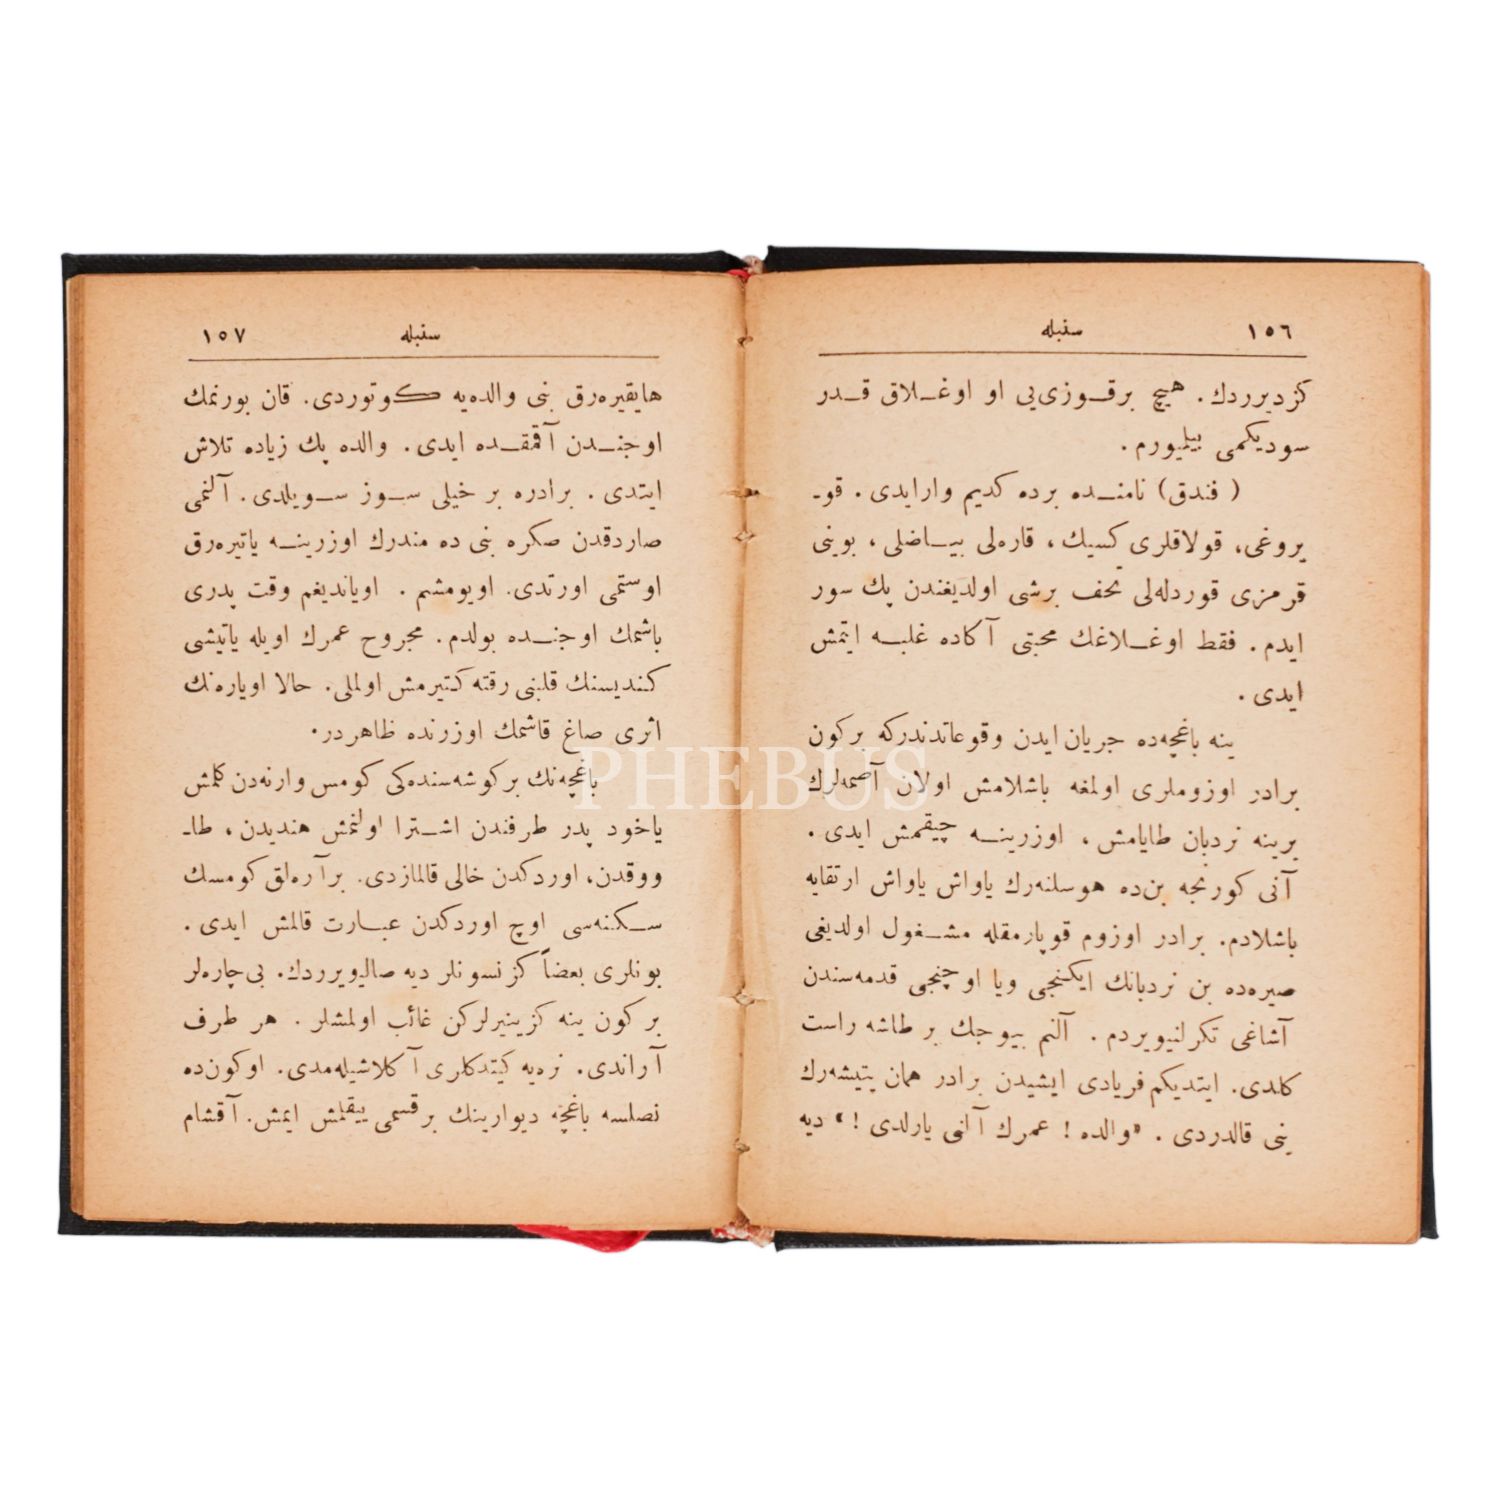 ١٥٦
سنبله
كزديرردك. هيچ برقوزى‌يى او اوغلاق قدر
سوديكمى بيلميورم.
(فندق) نامنده برده كديم وارايدى. قو-
يروغى، قولاقلرى كسيك، قاره‌لى بياضلى، بوينى
قرمزى قوردله‌لى تحف برشى اولديغندن پك سور
ايدم. فقط اوغلاغك محبتى آكاده غلبه ايتمش
ايدى.
ينه باغچه‌ده جريان ايدن وقوعاتدندركه بركون
برادر اوزوملرى اولمغه باشلامش اولان آصمه‌لرك
برينه نردبان طايامش، اوزرينه چيقمش ايدى.
آنى كورنجه بن‌ده هوسلنه‌رك ياواش ياواش ارتقايه
باشلادم. برادر اوزوم قوپارمقله مشغول اولديغى
صيره‌ده بن نردبانك ايكنجى ويا اوچنجى قدمه‌سندن
آشاغى تكرلنيويردم. آلنم بيوجك بر طاشه راست
كلدى. ايتديكم فريادى ايشيدن برادر همان يتيشه‌رك
بنى قالدردى. «والده! عمرك آلنى يارلدى!» ديه
١٥٧
سنبله
هايقيره‌رق بنى والده‌يه كوتوردى. قان بورنمك
اوجندن آقمقده ايدى. والده پك زياده تلاش
ايتدى. برادره بر خيلى سوز سويلدى. آلنمى
صاردقدن صكره بنى ده مندرك اوزرينه ياتيره‌رق
اوستمى اورتدى. اويومشم. اوياندیغم وقت پدرى
باشمك اوجنده بولدم. مجروح عمرك اويله ياتيشى
كنديسنك قلبنى رقته كتيرمش اولملى. حالا اوياره‌نك
اثرى صاغ قاشمك اوزرنده ظاهردر.
باغچه‌نك بركوشه‌سنده‌كى كومس وارنه‌دن كلمش
ياخود پدر طرفندن اشترا اولنمش هنديدن، طا-
ووقدن، اوردكدن خالى قالمازدى. برآره‌لق كومسك
سكنه‌سى اوچ اوردكدن عبارت قالمش ايدى.
بونلرى بعضاً كزنسونلر ديه صاليويرردك. بى‌چاره‌لر
بركون ينه كزينيرلركن غائب اولمشلر. هر طرف
آراندى. نره‌يه كيتدكلرى آكلاشيله‌مدى. اوكون‌ده
نصلسه باغچه ديوارينك برقسمى ييقلمش ايمش. آقشام
PHEBUS